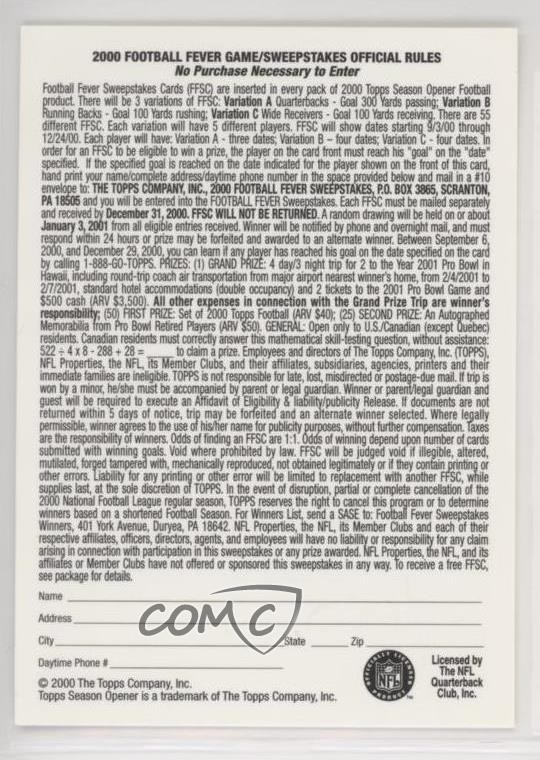 2000 FOOTBALL FEVER GAME/SWEEPSTAKES OFFICIAL RULES
No Purchase Necessary to Enter
Football Fever Sweepstakes Cards (FFSC) are inserted in every pack of 2000 Topps Season Opener Football
product. There will be 3 variations of FFSC: Variation A Quarterbacks - Goal 300 Yards passing; Variation B
Running Backs - Goal 100 Yards rushing; Variation C Wide Receivers - Goal 100 Yards receiving. There are 55
different FFSC. Each variation will have 5 different players. FFSC will show dates starting 9/3/00 through
12/24/00. Each player will have: Variation A - three dates; Variation B – four dates; Variation C - four dates. In
order for an FFSC to be eligible to win a prize, the player on the card front must reach his "goal" on the "date"
specified. If the specified goal is reached on the date indicated for the player shown on the front of this card,
hand print your name/complete address/daytime phone number in the space provided below and mail in a #10
envelope to: THE TOPPS COMPANY, INC., 2000 FOOTBALL FEVER SWEEPSTAKES, P.O. BOX 3865, SCRANTON,
PA 18505 and you will be entered into the FOOTBALL FEVER Sweepstakes. Each FFSC must be mailed separately
and received by December 31, 2000. FFSC WILL NOT BE RETURNED. A random drawing will be held on or about
January 3, 2001 from all eligible entries received. Winner will be notified by phone and overnight mail, and must
respond within 24 hours or prize may be forfeited and awarded to an alternate winner. Between September 6,
2000, and December 29, 2000, you can learn if any player has reached his goal on the date specified on the card
by calling 1-888-GO-TOPPS. PRIZES: (1) GRAND PRIZE: 4 day/3 night trip for 2 to the Year 2001 Pro Bowl in
Hawaii, including round-trip coach air transportation from major airport nearest winner's home, from 2/4/2001 to
2/7/2001, standard hotel accommodations (double occupancy) and 2 tickets to the 2001 Pro Bowl Game and
$500 cash (ARV $3,500). All other expenses in connection with the Grand Prize Trip are winner's
responsibility; (50) FIRST PRIZE: Set of 2000 Topps Football (ARV $40); (25) SECOND PRIZE: An Autographed
Memorabilia from Pro Bowl Retired Players (ARV $50). GENERAL: Open only to U.S./Canadian (except Quebec)
residents. Canadian residents must correctly answer this mathematical skill-testing question, without assistance:
522 ÷ 4 x 8 - 288 + 28 = ______ to claim a prize. Employees and directors of The Topps Company, Inc. (TOPPS),
NFL Properties, the NFL, its Member Clubs, and their affiliates, subsidiaries, agencies, printers and their
immediate families are ineligible. TOPPS is not responsible for late, lost, misdirected or postage-due mail. If trip is
won by a minor, he/she must be accompanied by parent or legal guardian. Winner or parent/legal guardian and
guest will be required to execute an Affidavit of Eligibility & liability/publicity Release. If documents are not
returned within 5 days of notice, trip may be forfeited and an alternate winner selected. Where legally
permissible, winner agrees to the use of his/her name for publicity purposes, without further compensation. Taxes
are the responsibility of winners. Odds of finding an FFSC are 1:1. Odds of winning depend upon number of cards
submitted with winning goals. Void where prohibited by law. FFSC will be judged void if illegible, altered,
mutilated, forged tampered with, mechanically reproduced, not obtained legitimately or if they contain printing or
other errors. Liability for any printing or other error will be limited to replacement with another FFSC, while
supplies last, at the sole discretion of TOPPS. In the event of disruption, partial or complete cancellation of the
2000 National Football League regular season, TOPPS reserves the right to cancel this program or to determine
winners based on a shortened Football Season. For Winners List, send a SASE to: Football Fever Sweepstakes
Winners, 401 York Avenue, Duryea, PA 18642. NFL Properties, the NFL, its Member Clubs and each of their
respective affiliates, officers, directors, agents, and employees will have no liability or responsibility for any claim
arising in connection with participation in this sweepstakes or any prize awarded. NFL Properties, the NFL, and its
affiliates or Member Clubs have not offered or sponsored this sweepstakes in any way. To receive a free FFSC,
see package for details.
Name
COMC
Address
City State Zip
Daytime Phone #
NFL
Licensed by
The NFL
Quarterback
Club, Inc.
© 2000 The Topps Company, Inc.
Topps Season Opener is a trademark of The Topps Company, Inc.